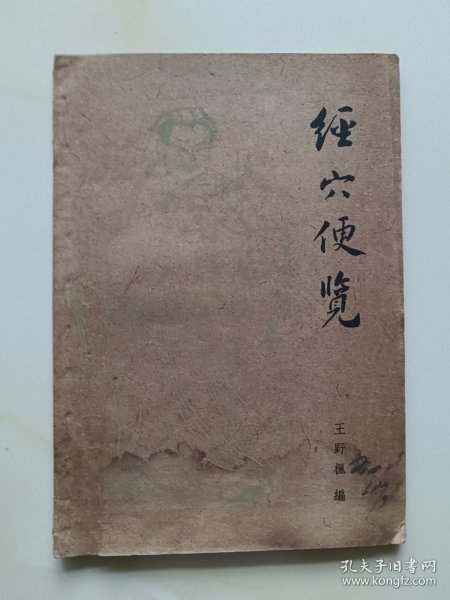 經穴便覽
王野楓編
孔夫子旧书网
www.kongfz.com